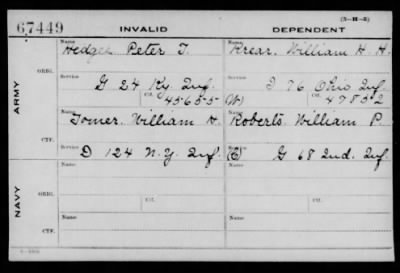 67449 INVALID DEPENDENT (3-H-2)
Name Name
Hedges Peter T. Krear, William H. H.
ARMY
ORIG.
Service Service
G 24 Ky Inf. I 76 Ohio Inf
Ctf. 45655 (W) Ctf. 47852
Name Name
Tomer, William H. Roberts William P.
CTF.
Service Service
D 124 N.Y. Inf. (C) G 68 Ind. Inf
NAVY
Name Name
ORIG.
Ctf. Ctf.
Name Name
CTF.